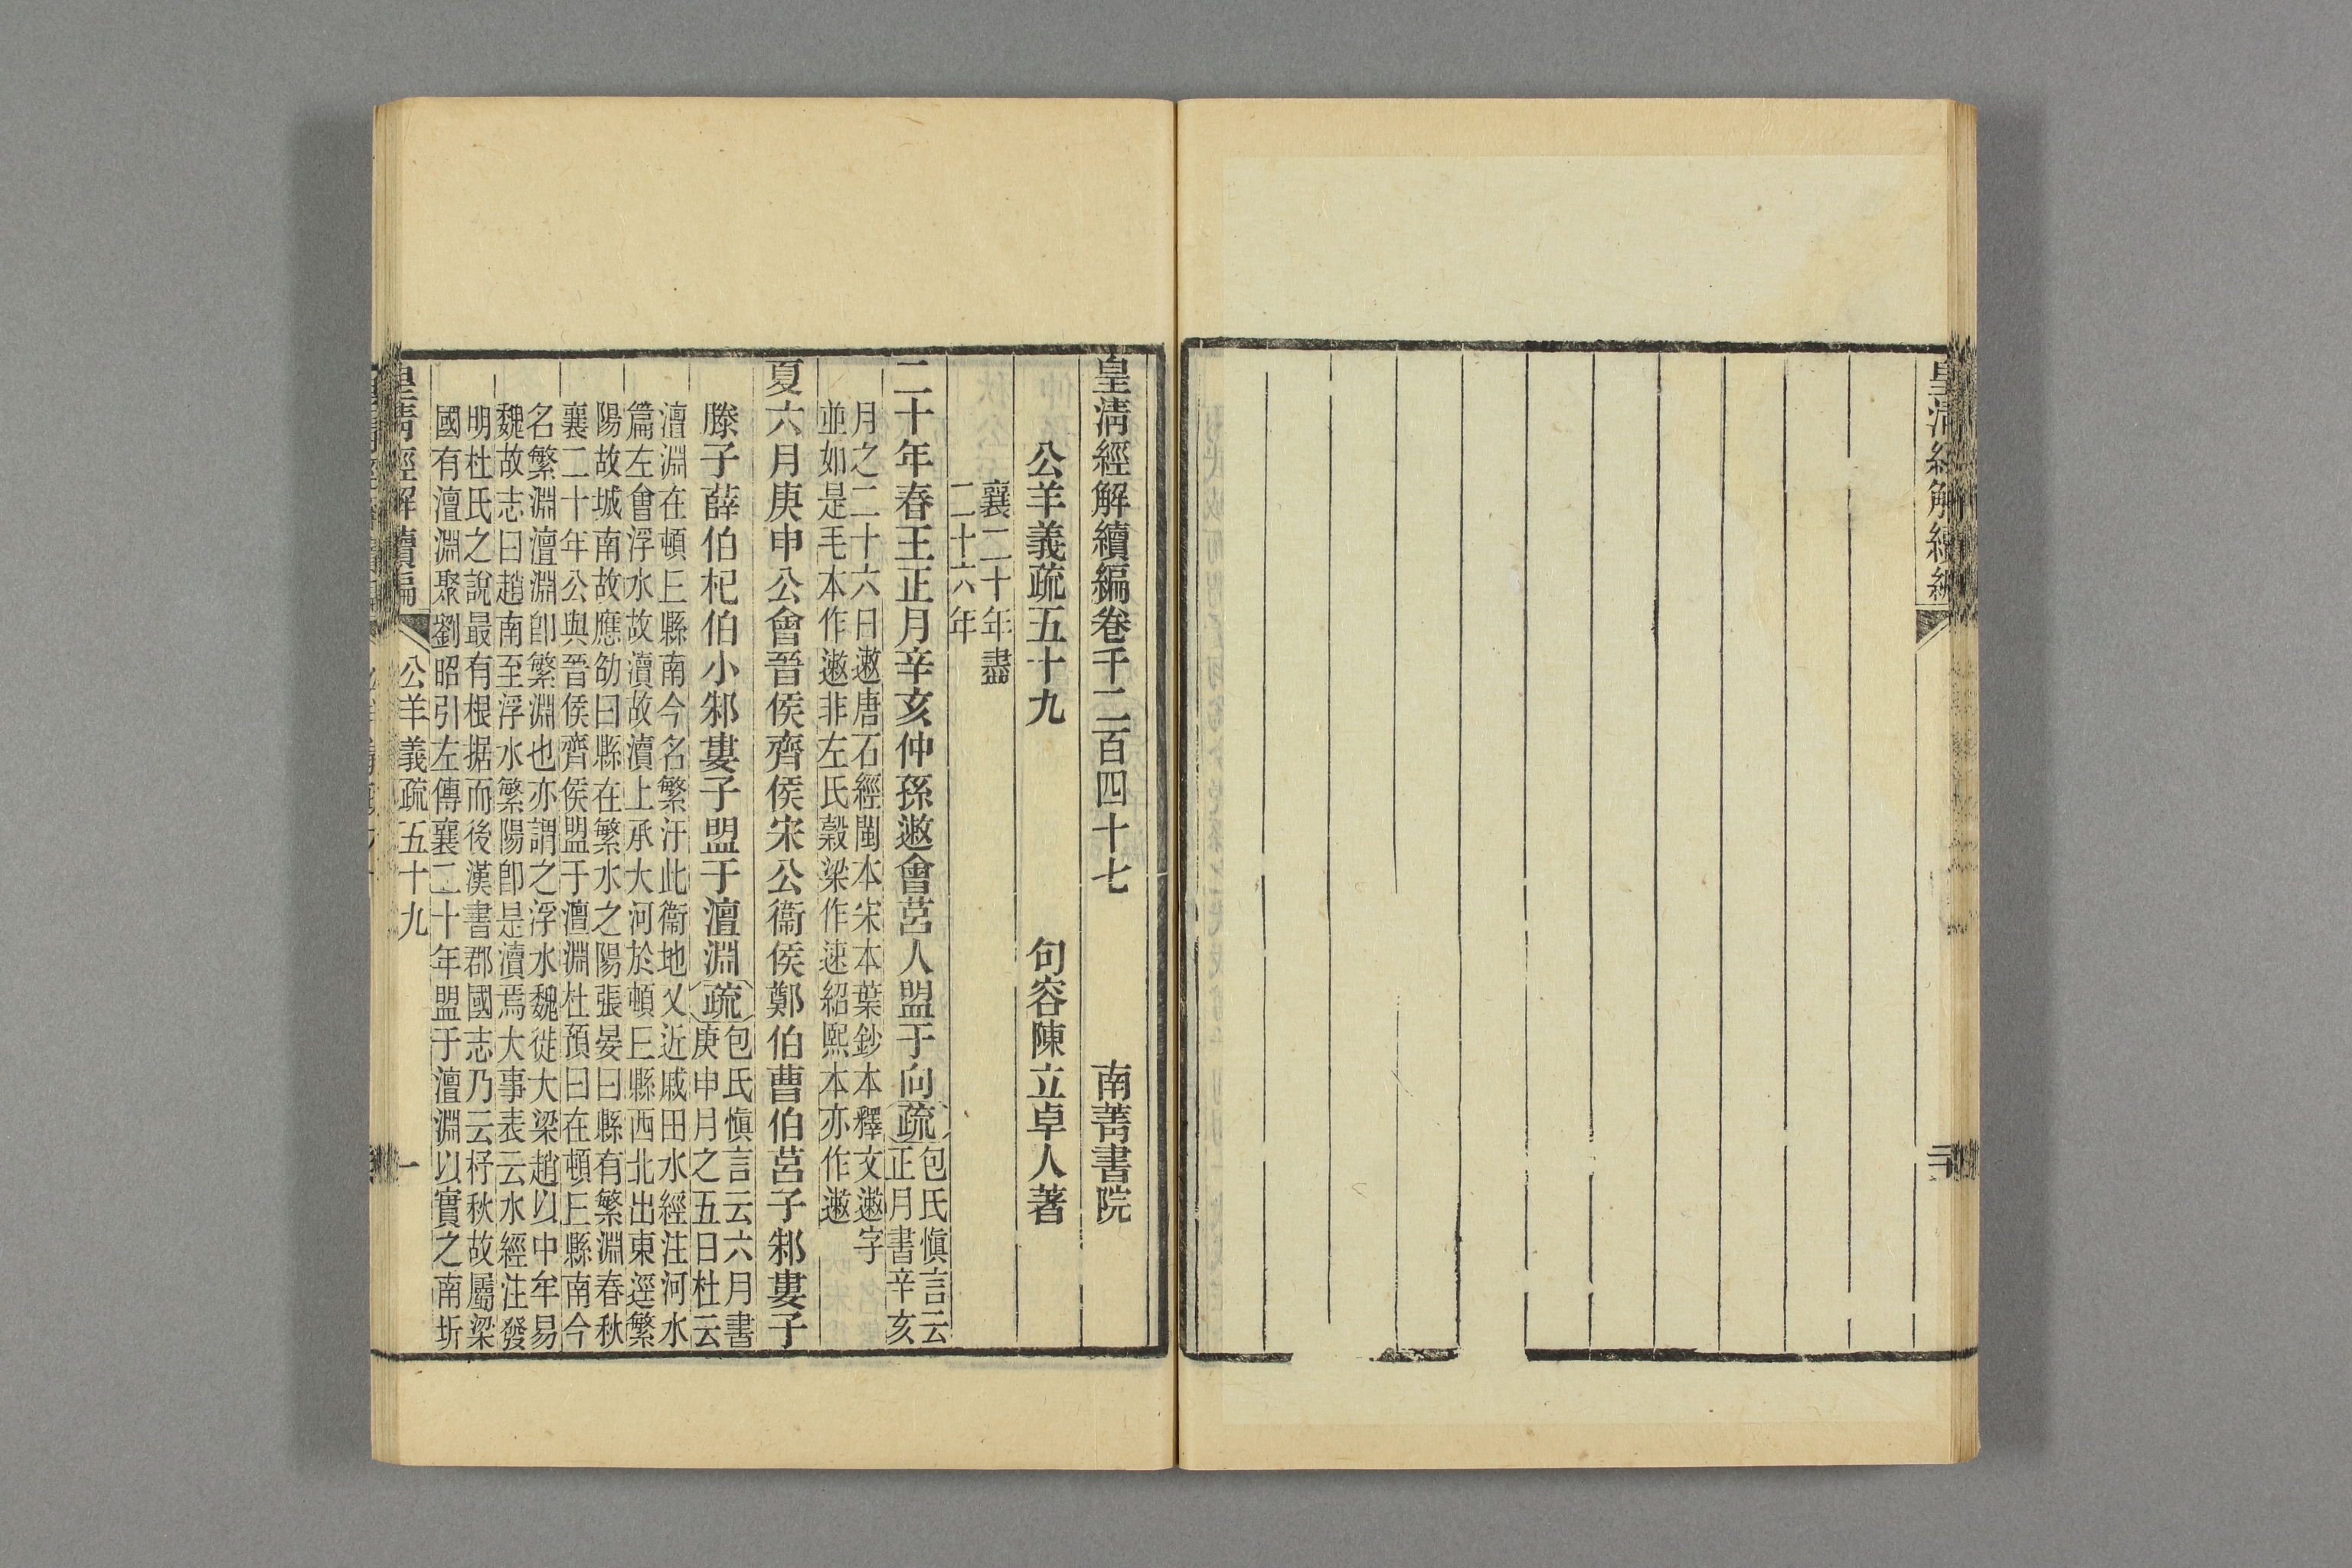 皇清經解續編
皇清經解續編卷千二百四十七　南菁書院
公羊義疏五十九　句容陳立卓人著
襄二十年盡
二十六年
二十年春王正月辛亥仲孫遬會莒人盟于向疏
包氏愼言云
正月書辛亥
月之二十六日遬唐石經閩本宋本葉鈔本釋文遬字
並如是毛本作遬非左氏穀梁作速紹熙本亦作遬
夏六月庚申公會晉侯齊侯宋公衞侯鄭伯曹伯莒子邾婁子
滕子薛伯杞伯小邾婁子盟于澶淵疏
包氏愼言云六月書
庚申月之五日杜云
澶淵在頓丘縣南今名繁汙此衞地乂近戚田水經注河水
篇左會浮水故瀆故瀆上承大河於頓丘縣西北出東逕繁
陽故城南故應劭曰縣在繁水之陽張晏曰縣有繁淵春秋
襄二十年公與晉侯齊侯盟于澶淵杜預曰在頓丘縣南今
名繁淵澶淵卽繁淵也亦謂之浮水魏徙大梁趙以中牟易
魏故志曰趙南至浮水繁陽卽是瀆焉大事表云水經注發
明杜氏之說最有根据而後漢書郡國志乃云杼秋故屬梁
國有澶淵聚劉昭引左傳襄二十年盟于澶淵以實之南圻
皇清經解續編　公羊義疏五十九　一